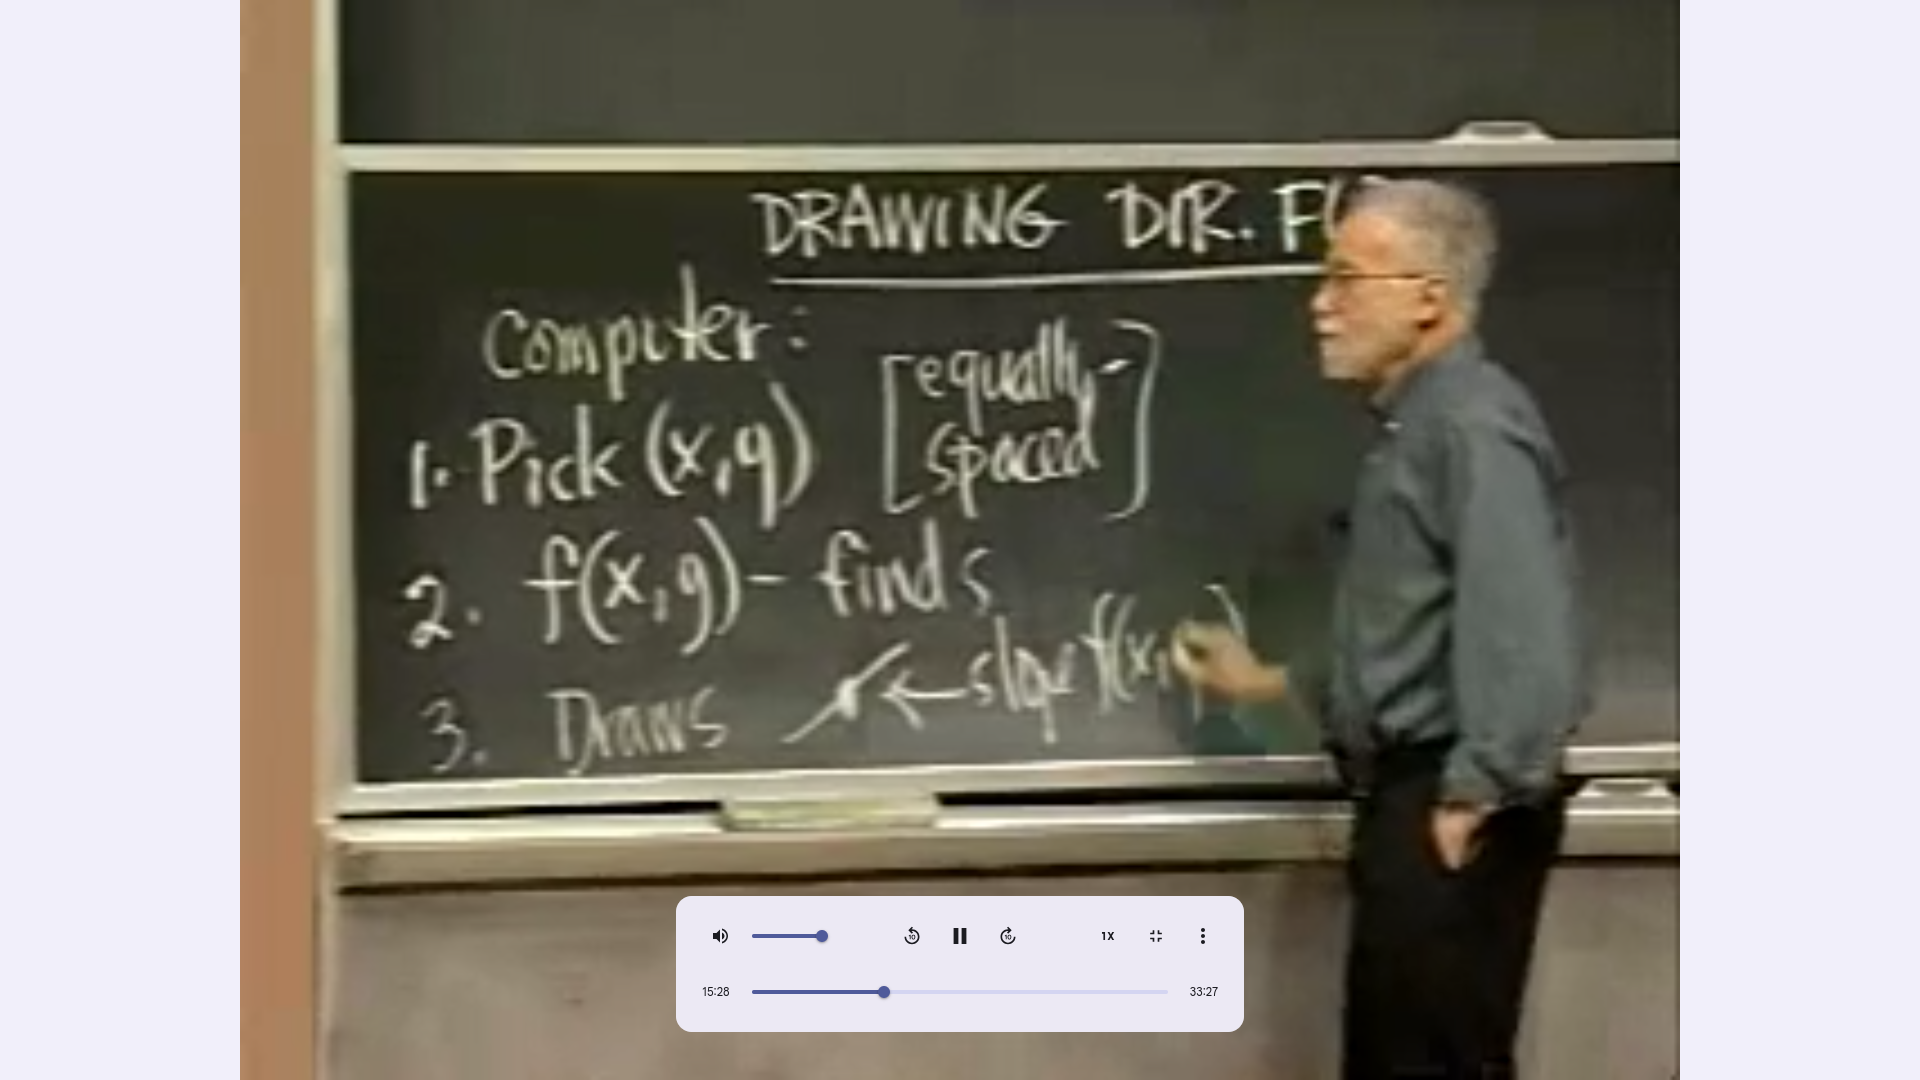 DRAWING DIR. F
Computer:
1. Pick (x,y) [equally-
spaced]
2. f(x,y) - finds
3. Draws ← slope f(x,
1X
15:28
33:27